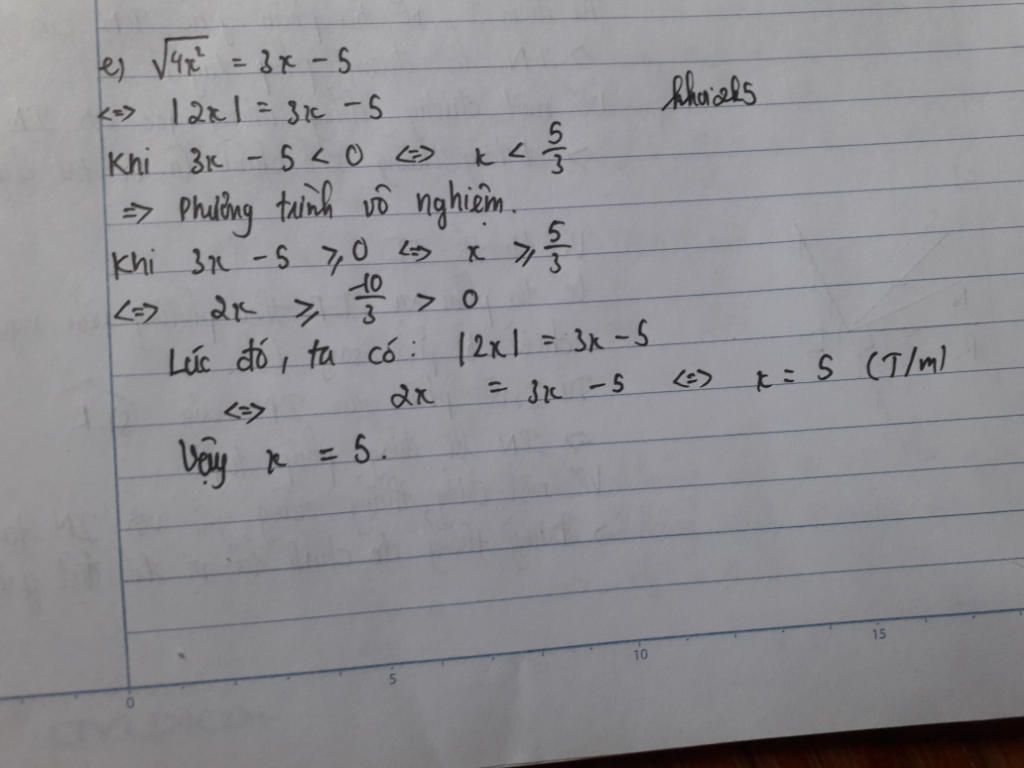 e) √4x² = 3x - 5
<=> |2x| = 3x - 5
khai2k5
Khi 3x - 5 < 0 <=> x < 5/3
=> Phương trình vô nghiệm.
Khi 3x - 5 ≥ 0 <=> x ≥ 5/3
<=> 2x ≥ 10/3 > 0
Lúc đó, ta có: |2x| = 3x - 5
<=> 2x = 3x - 5 <=> x = 5 (T/m)
Vậy x = 5.
0 5 10 15